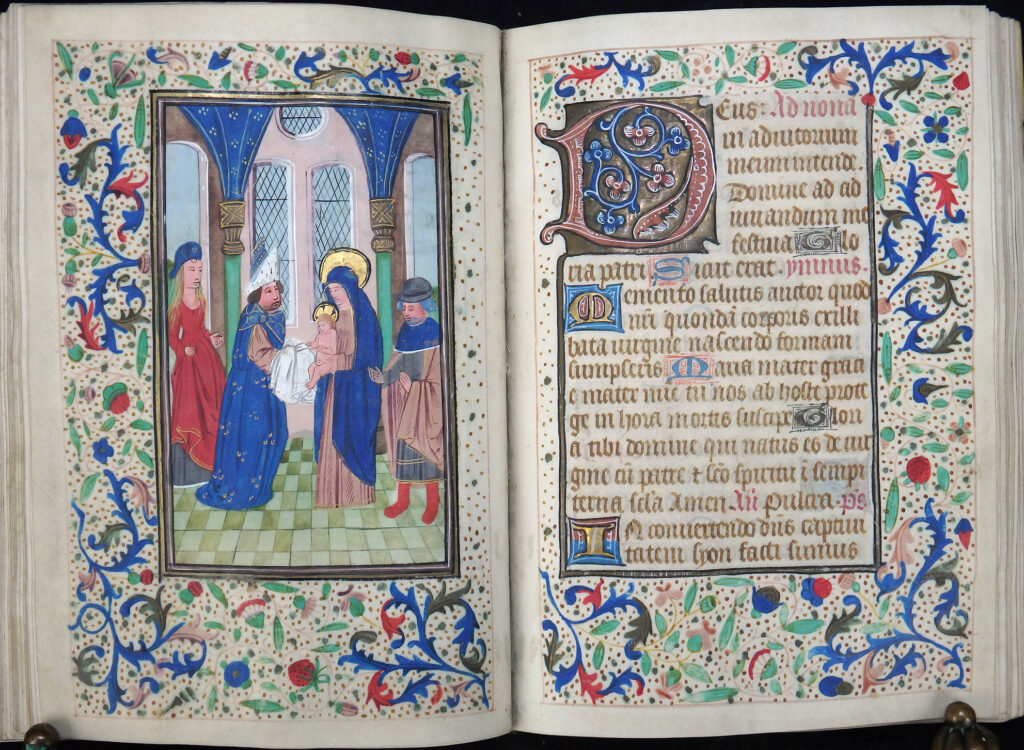 Deus: Ad nona
in adiutorium
meum intende
Domine ad ad
iuuandum me
festina Glo
ria patri Sicut erat. ymnus.
Memento salutis auctor quod
nri quondā corporis ex illi
bata uirgine nascendo formam
sumpseris Maria mater grati
e mater mie tu nos ab hoste prote
ge in hora mortis suscipe Glori
a tibi domine qui natus es de uir
gine cū patre et sco spiritu ī sempi
terna scla Amen An Pulcra ps
In conuertendo dns captiui
tatem syon facti sumus